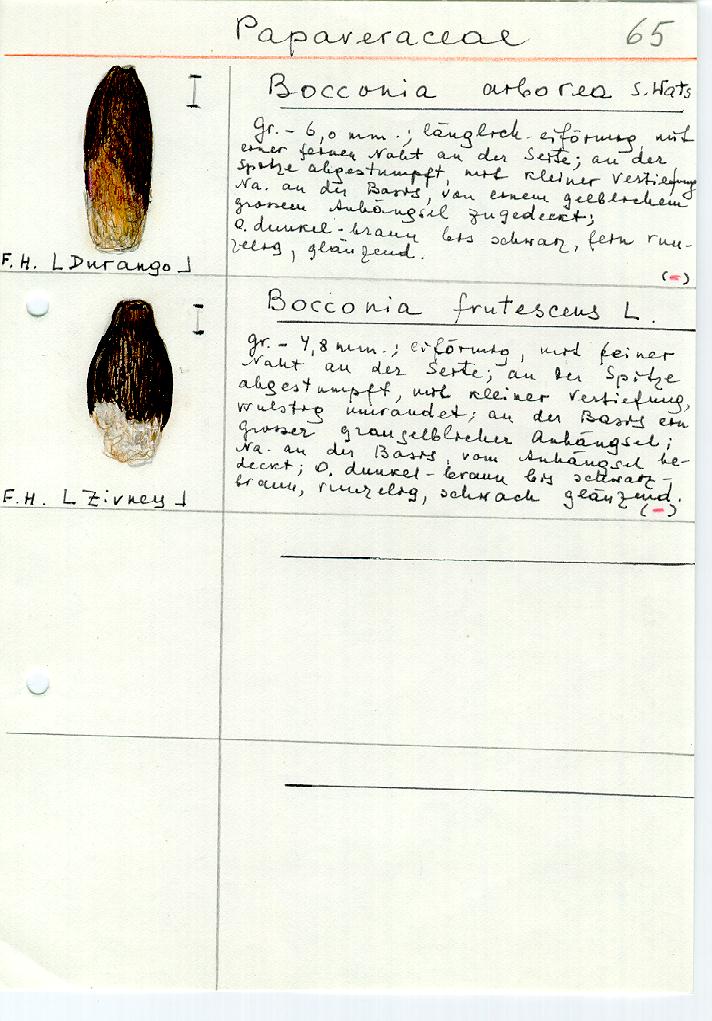 Papaveraceae 65
Bocconia arborea S. Wats
Gr. - 6,0 mm.; länglich-eiförmig mit
einer feinen Naht an der Seite; an der
Spitze abgestumpft, mit kleiner Vertiefung
Na. an der Basis, von einem gelblichem
grossem Anhängsel zugedeckt;
O. dunkel-braun bis schwarz, fein run-
zelig, glänzend.
F. H. [Durango]
(-)
Bocconia frutescens L.
Gr. - 4,8 mm.; eiförmig, mit feiner
Naht an der Seite; an der Spitze
abgestumpft, mit kleiner Vertiefung,
wulstig umrandet; an der Basis ein
grosser graugelblicher Anhängsel;
Na. an der Basis, vom Anhängsel be-
deckt; O. dunkel-braun bis schwarz-
braun, runzelig, schwach glänzend.
F. H. [Zivney]
(-)